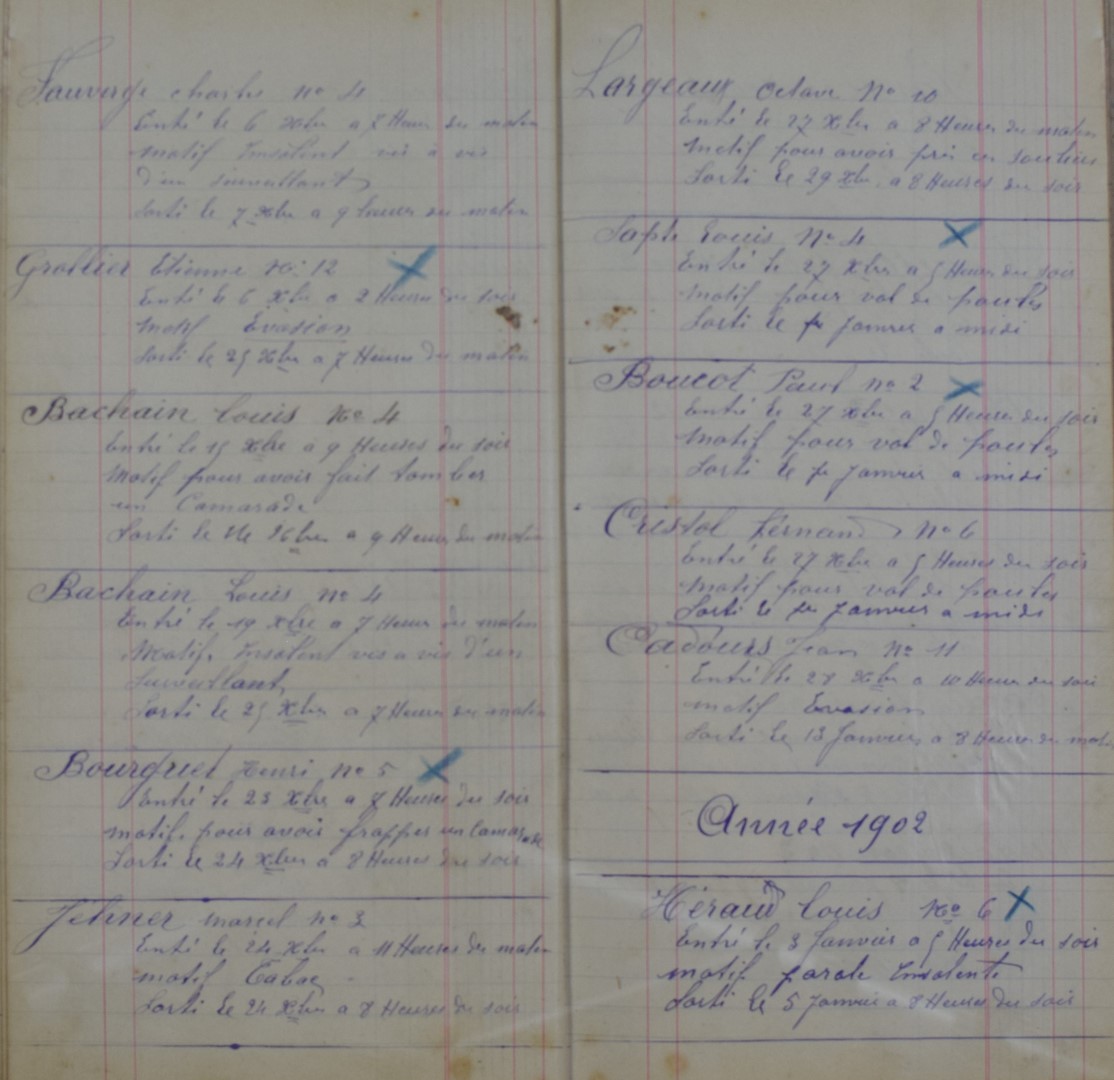 Fauverge charles no 4
Entré le 6 Xbre a 7 Heures du matin
Motif Insolent vis à vis
d'un surveillant
Sorti le 7 Xbre a 9 heures du matin
Grollier Etienne No 12
Entré le 6 Xbre a 2 Heures du soir
Motif Evasion
Sorti le 25 Xbre a 7 Heures du matin
Bachain Louis No 4
Entré le 15 Xbre a 9 Heures du soir
Motif pour avoir fait tomber
un Camarade
Sorti le 16 Xbre a 9 Heures du matin
Bachain Louis no 4
Entré le 19 Xbre a 7 Heures du matin
Motif. Insolent vis a vis d'un
Surveillant
Sorti le 25 Xbre a 7 Heures du matin
Bourguet Henri No 5
Entré le 23 Xbre a 7 Heures du soir
motif. pour avoir frapper un Camarade
Sorti le 24 Xbre a 8 Heures du soir
marcel no 3
Entré le 24 Xbre a 11 Heures du matin
motif Tabac
Sorti le 24 Xbre a 8 Heures du soir
Largeaux Octave No 10
Entré le 27 Xbre a 8 Heures du matin
Motif pour avoir pris un
Sorti le 29 Xbre a 8 Heures du soir
Sapte Louis No 4
Entré le 27 Xbre a 5 Heures du soir
Motif pour vol de poules
Sorti le janvier a midi
Boucot Paul no 2
Entré le 27 Xbre a 5 Heures du soir
Motif pour vol de poules
Sorti le janvier a midi
Cristol Fernand No 6
Entré le 27 Xbre a 5 Heures du soir
Motif pour vol de poules
Sorti le janvier a midi
Cadours Jean No 11
Entré le 28 Xbre a 10 Heures du soir
motif Evasion
Sorti le 13 Janvier a 8 Heures du matin
Année 1902
Héraud Louis No 6
Entré le 3 Janvier a 5 Heures du soir
motif parole Insolente
Sorti le 5 Janvier a 8 Heures du soir